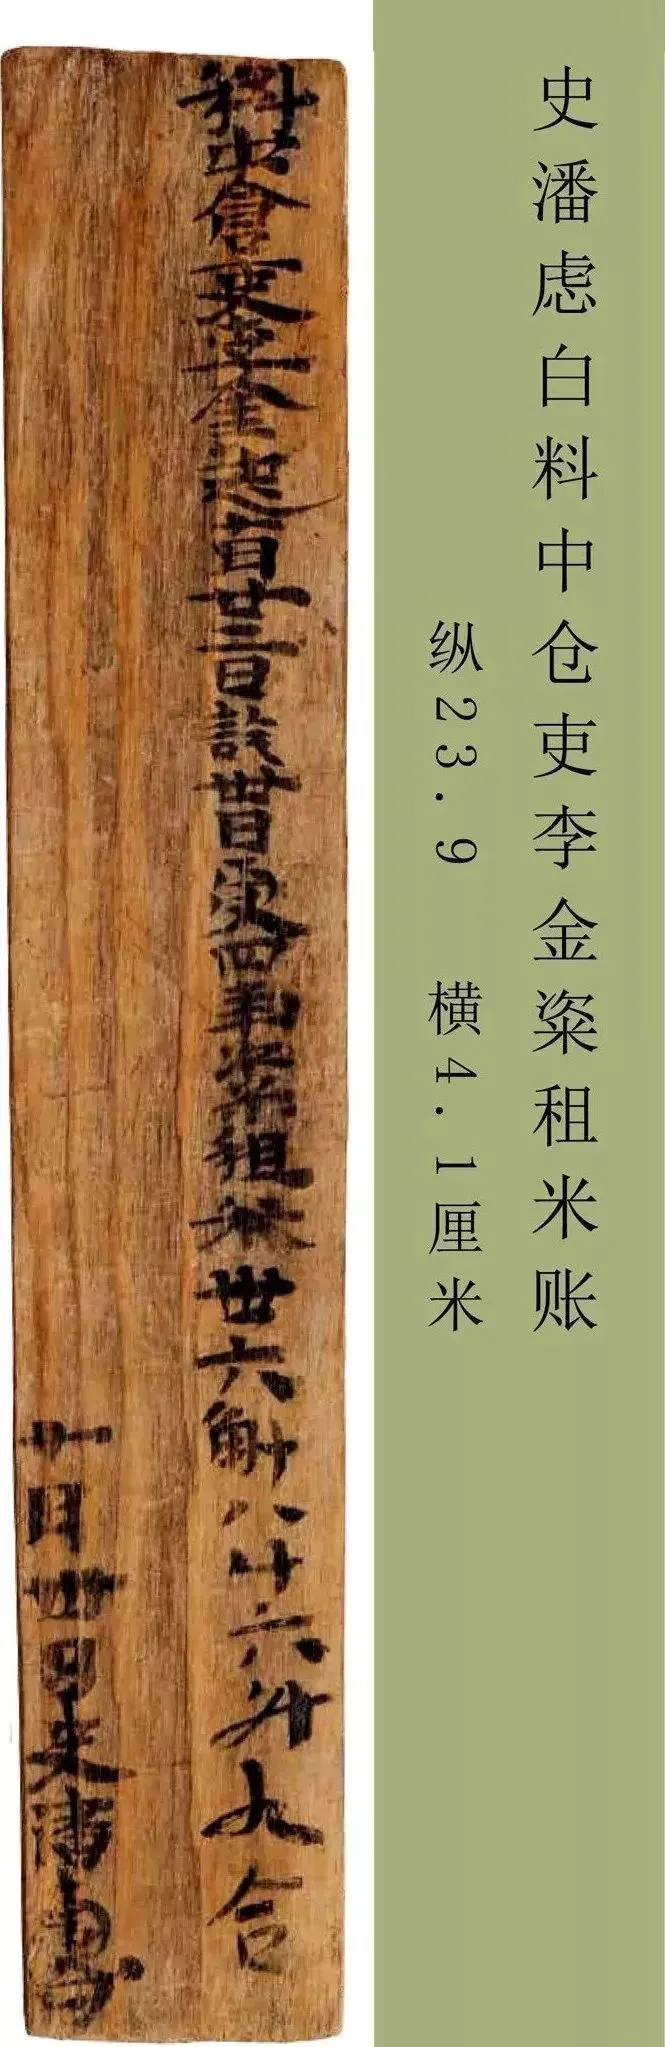 史潘虑白料中仓吏李金粢租米账
纵23.9 横4.1厘米
料中倉吏李金起百廿三日訖卅日受四年粢租米卅六斛八斗六升九合
十一月卅日史潘慮白